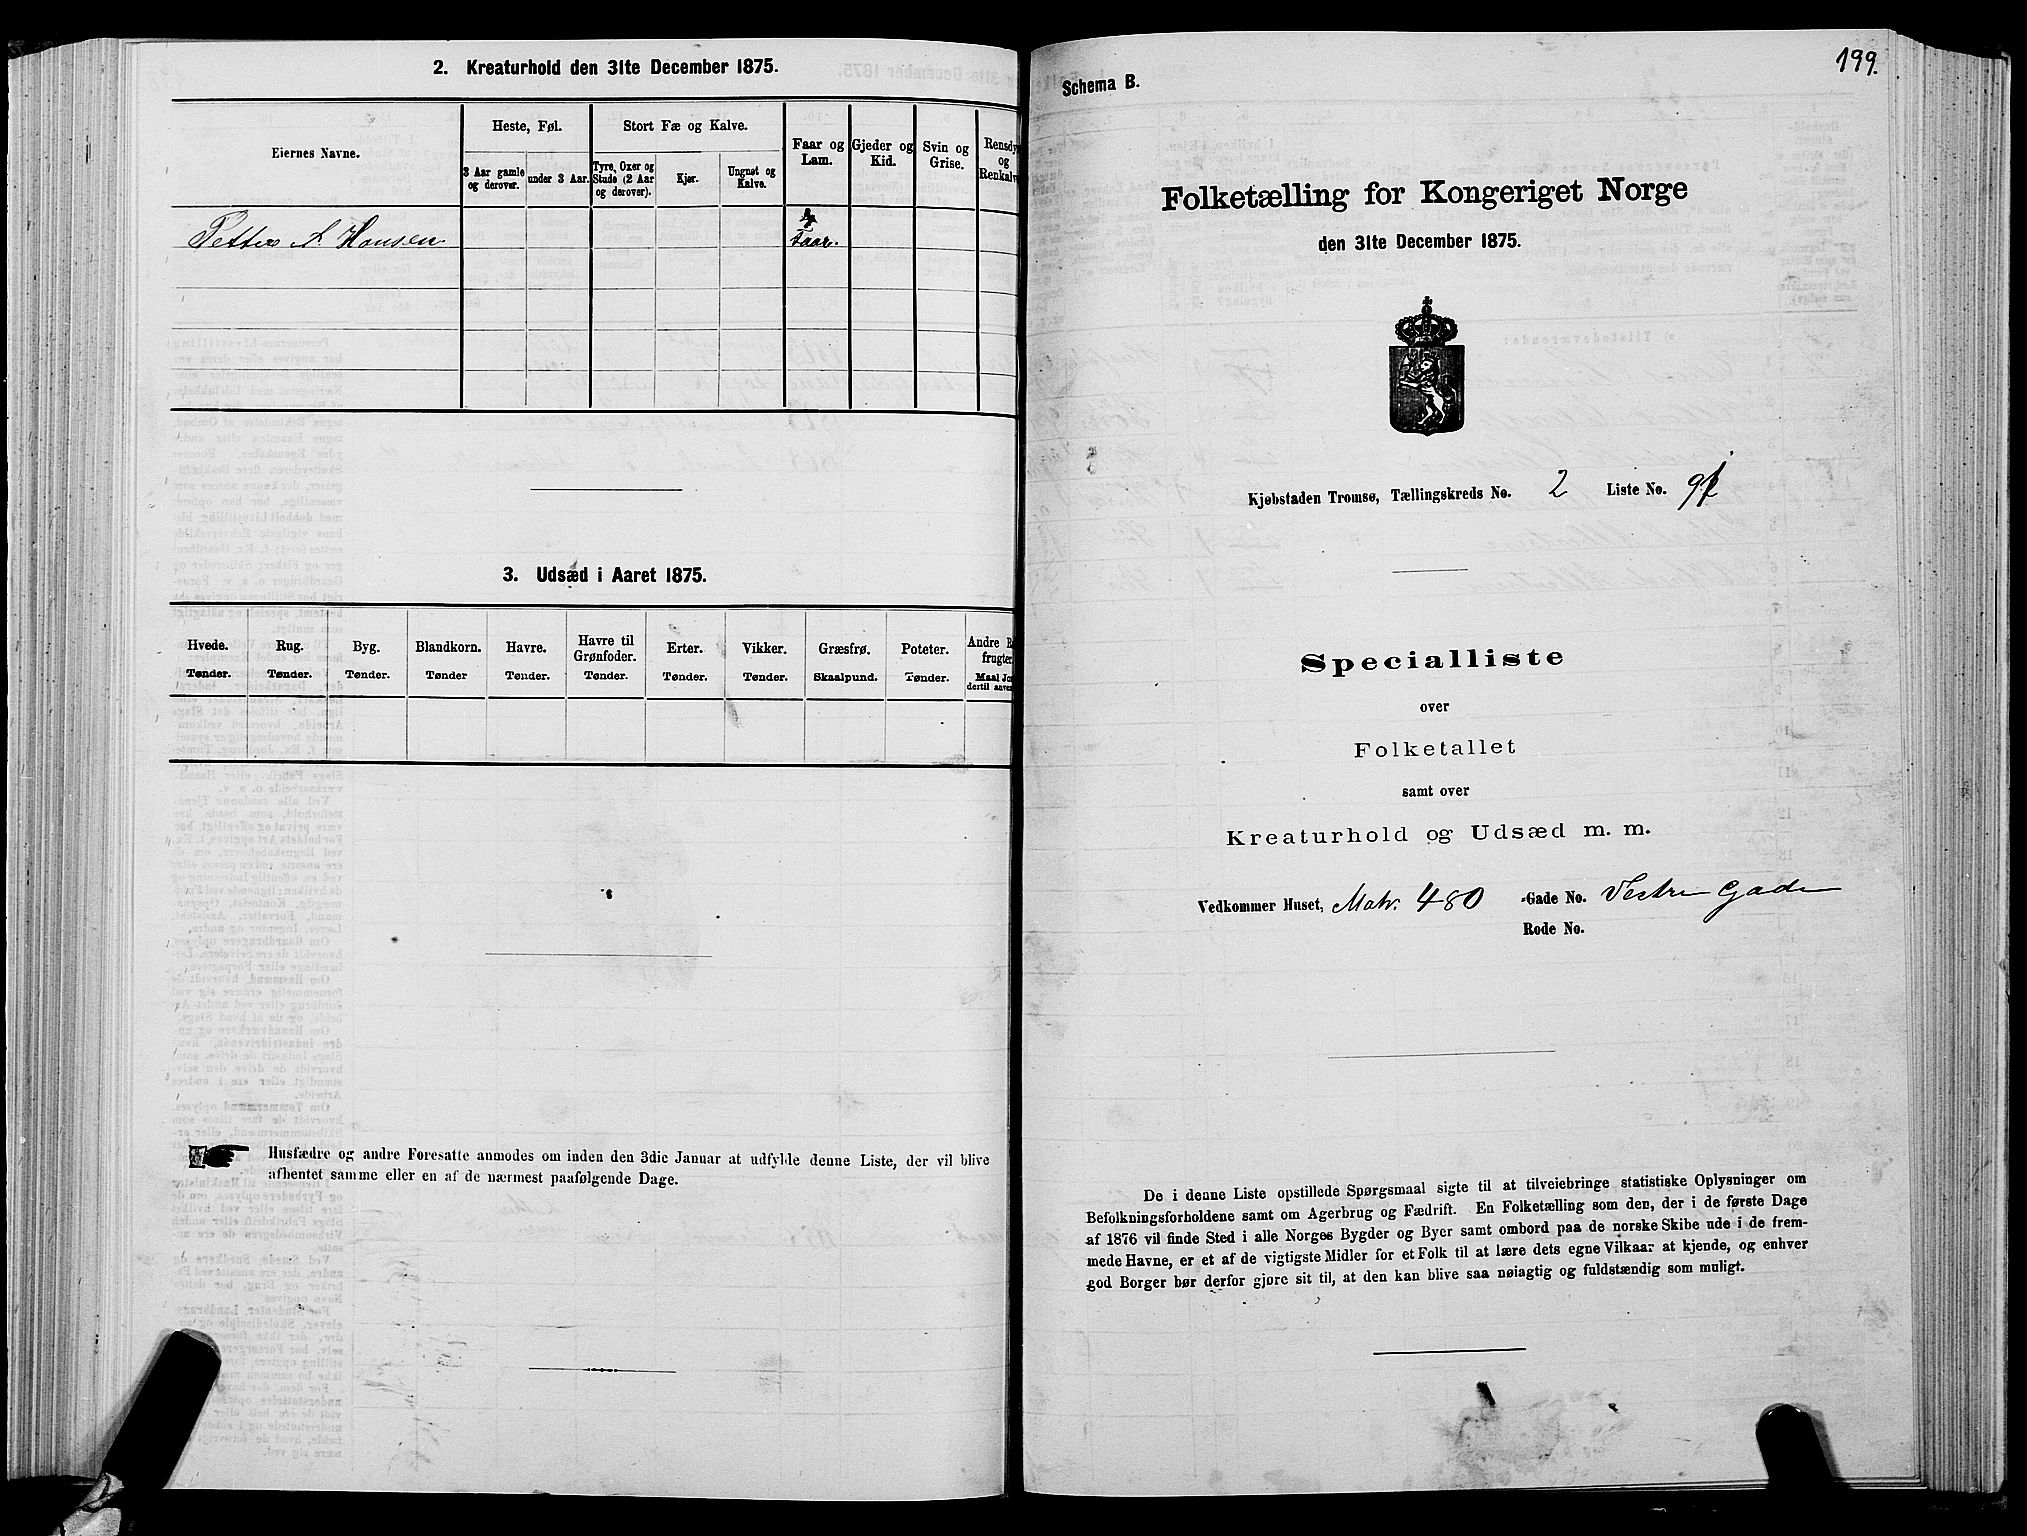 2. Kreaturhold den 31te December 1875.
Eiernes Navne.
Heste, Føl.
3 Aar gamle og derover.
under 3 Aar.
Stort Fæ og Kalve.
Tyre, Oxer og Stude (2 Aar og derover).
Kjør.
Ungnøt og Kalve.
Faar og Lam.
Gjeder og Kid.
Svin og Grise.
Rensdy
og
Renkalv
Petter A Hansen
faar.
3. Udsæd i Aaret 1875.
Hvede. Rug. Byg. Blandkorn. Havre. Havre til Grønfoder. Erter. Vikker. Græsfrø. Poteter. Andre R
frugter
Tønder. Tønder. Tønder. Tønder Tønder. Tønder. Tønder. Tønder. Skaalpund. Tønder. Maal Jor
dertil anven
Husfædre og andre Foresatte anmodes om inden den 3die Januar at udfylde denne Liste, der vil blive
afhentet samme eller en af de nærmest paafølgende Dage.
199.
Schema B.
Folketælling for Kongeriget Norge
den 31te December 1875.
Kjøbstaden Tromsø, Tællingskreds No. 2 Liste No.
Specialliste
over
Folketallet
samt over
Kreaturhold og Udsæd m. m.
Vedkommer Huset, Matr. 480 -Gade No. Vestre Gade
Rode No.
De i denne Liste opstillede Spørgsmaal sigte til at tilveiebringe statistiske Oplysninger om
Befolkningsforholdene samt om Agerbrug og Fædrift. En Folketælling som den, der i de første Dage
af 1876 vil finde Sted i alle Norges Bygder og Byer samt ombord paa de norske Skibe ude i de frem-
mede Havne, er et af de vigtigste Midler for et Folk til at lære dets egne Vilkaar at kjende, og enhver
god Borger bør derfor gjøre sit til, at den kan blive saa nøiagtig og fuldstændig som muligt.